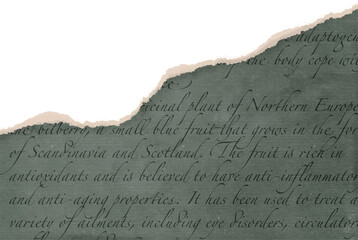 adaptogen
of the body cope wit
icinal plant of Northern Europe
he bilberry a small blue fruit that grows in the for
of Scandinavia and Scotland. The fruit is rich in
antioxidants and is believed to have anti-inflammator
and anti-aging properties. It has been used to treat a
variety of ailments, including eye disorders, circulator